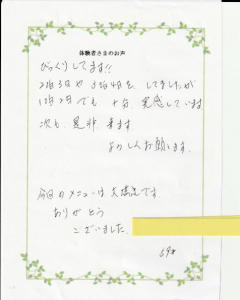 体験者さまのお声
びっくりしてます!!
2泊3日や3泊4日を、してましたが
1泊2日でも 十分 実感しています
次も、是非 来ます
よろしくお願います。
今回のメニューは大満足です。
ありがとう
ございました。